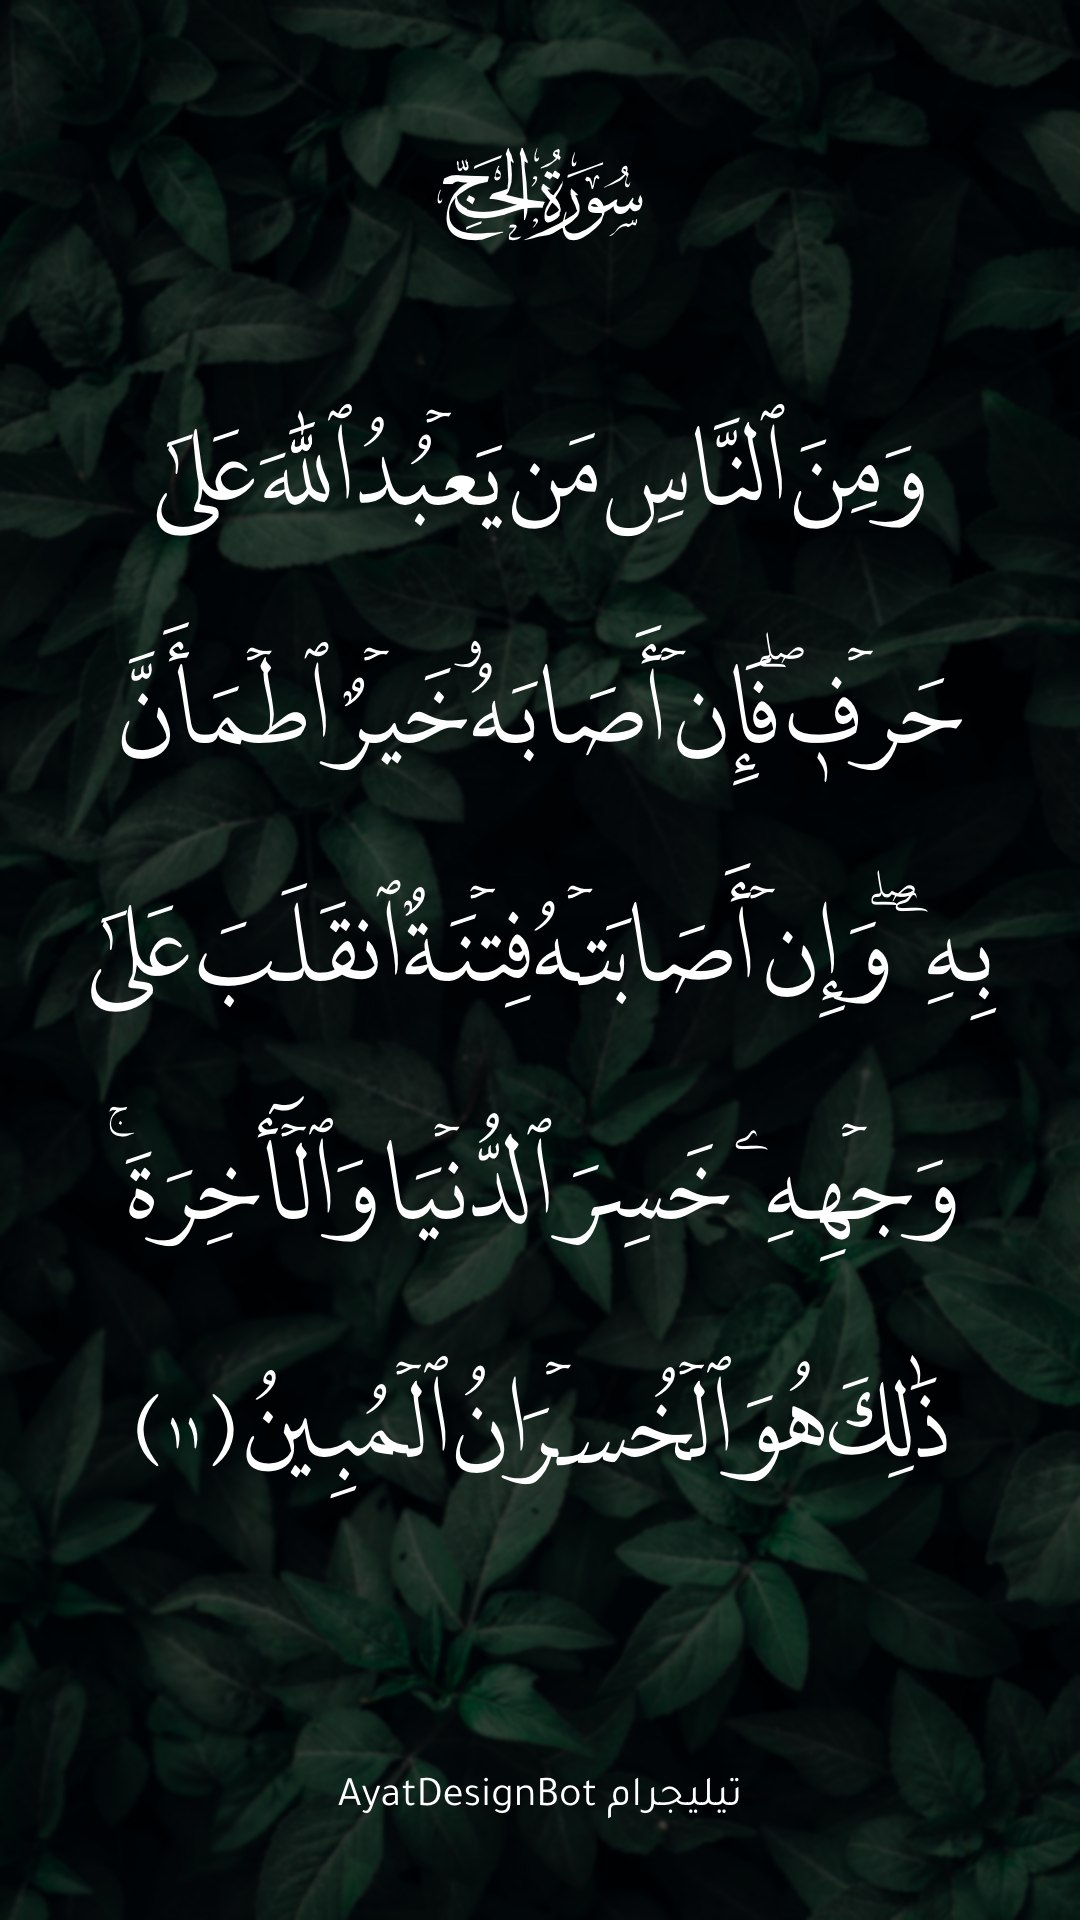 سُورَةُ الحَجِّ
وَمِنَ ٱلنَّاسِ مَن يَعۡبُدُ ٱللَّهَ عَلَىٰ
حَرۡفٖۖ فَإِنۡ أَصَابَهُۥ خَيۡرٌ ٱطۡمَأَنَّ
بِهِۦۖ وَإِنۡ أَصَابَتۡهُ فِتۡنَةٌ ٱنقَلَبَ عَلَىٰ
وَجۡهِهِۦ خَسِرَ ٱلدُّنۡيَا وَٱلۡأٓخِرَةَۚ
ذَٰلِكَ هُوَ ٱلۡخُسۡرَانُ ٱلۡمُبِينُ (١١)
تيليجرام AyatDesignBot